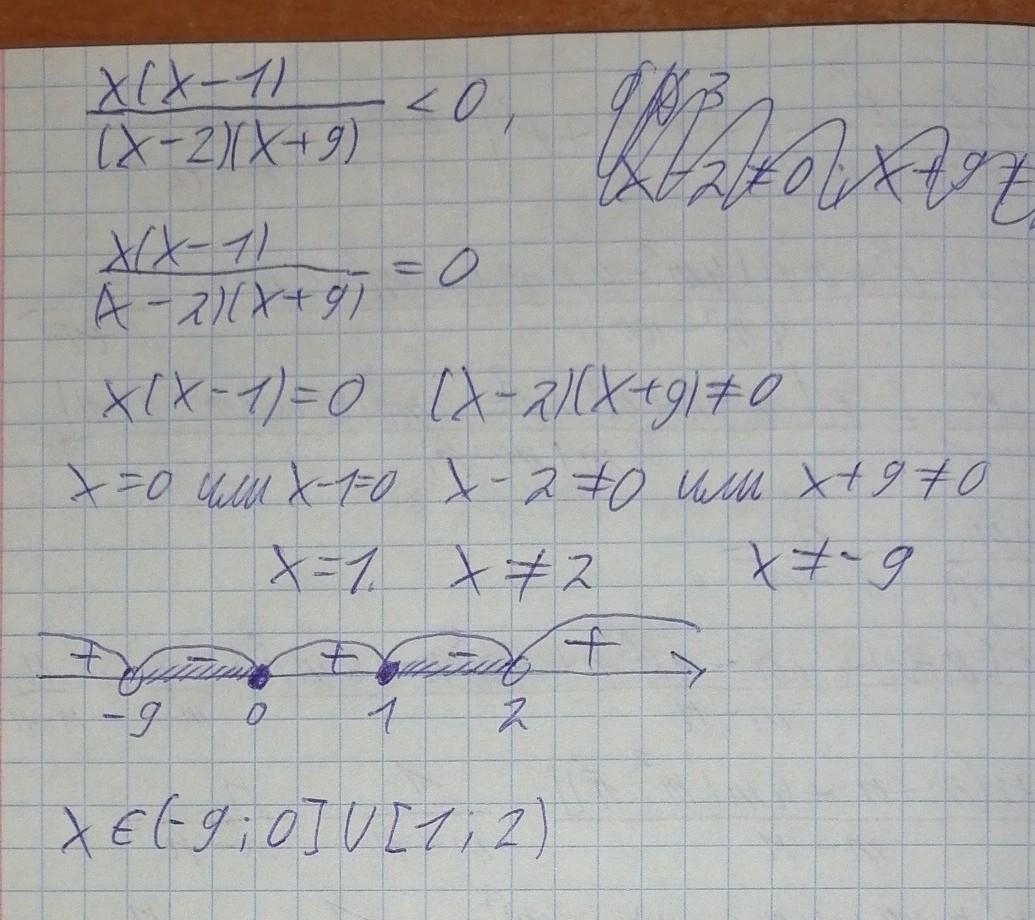 x(x-1)
(x-2)(x+9) < 0,
x(x-1)
(x-2)(x+9) = 0
x(x-1)=0 (x-2)(x+9)≠0
x=0 или x-1=0 x-2≠0 или x+9≠0
x=1. x≠2 x≠-9
+ - + - +
-9 0 1 2
x∈(-9;0]∪[1;2)